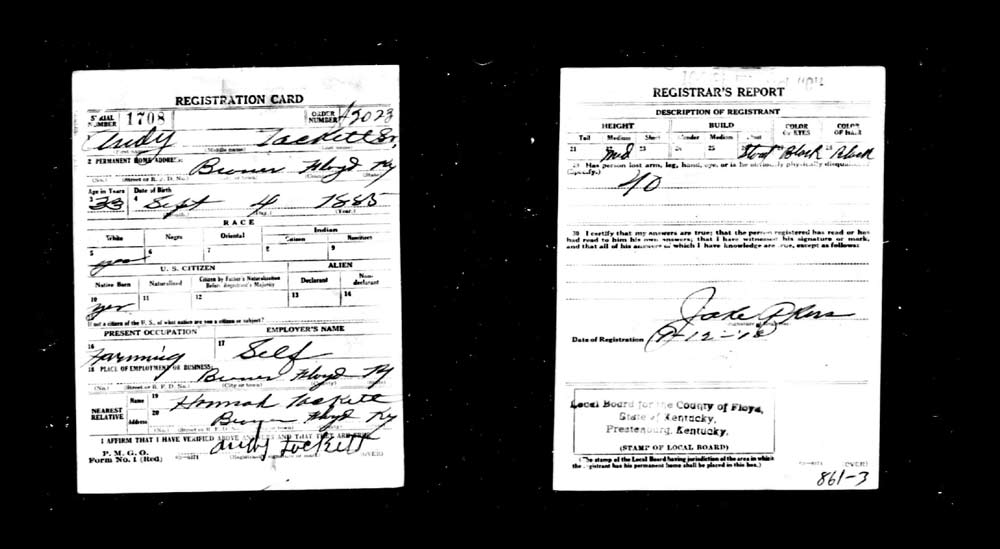 REGISTRATION CARD
SERIAL NUMBER 1708 ORDER NUMBER A3023
Andy Tackett Sr.
2 PERMANENT HOME ADDRESS:
Floyd Ky
(No.) (Street or R. F. D. No.)
Age in Years Date of Birth
3 33 4 Sept 4 1885
(Month.) (Day.) (Year.)
RACE
White Negro Oriental Indian
Citizen Noncitizen
5 6 7 8 9
yes
U. S. CITIZEN ALIEN
Native Born Naturalized Citizen by Father's Naturalization Before Registrant's Majority Declarant Non-declarant
10 11 12 13 14
yes
If not a citizen of the U. S., of what nation are you a citizen or subject?
PRESENT OCCUPATION EMPLOYER'S NAME
16 17
Farming Self
18 PLACE OF EMPLOYMENT OR BUSINESS:
Floyd Ky
(No.) (Street or R. F. D. No.) (City or town) (County) (State)
NEAREST RELATIVE Name 19 Hannah Tackett
Address 20 Floyd Ky
I AFFIRM THAT I HAVE VERIFIED ABOVE ANSWERS AND THAT THEY ARE TRUE
P. M. G. O.
Form No. 1 (Red) Andy Tackett
(OVER)
REGISTRAR'S REPORT
DESCRIPTION OF REGISTRANT
HEIGHT BUILD COLOR OF EYES COLOR OF HAIR
Tall Medium Short Slender Medium Stout
21 Med 23 25 Stout Black 28 Black
29 Has person lost arm, leg, hand, eye, or is he obviously physically disqualified?
(Specify.)
30 I certify that my answers are true; that the person registered has read or has
had read to him his own answers; that I have witnessed his signature or mark,
and that all of his answers of which I have knowledge are true, except as follows:
Jake Akers
Date of Registration 9-12-18
Local Board for the County of Floyd,
State of Kentucky,
Prestonburg, Kentucky.
(STAMP OF LOCAL BOARD)
(The stamp of the Local Board having jurisdiction of the area in which
the registrant has his permanent home shall be placed in this box.)
(OVER)
861-3